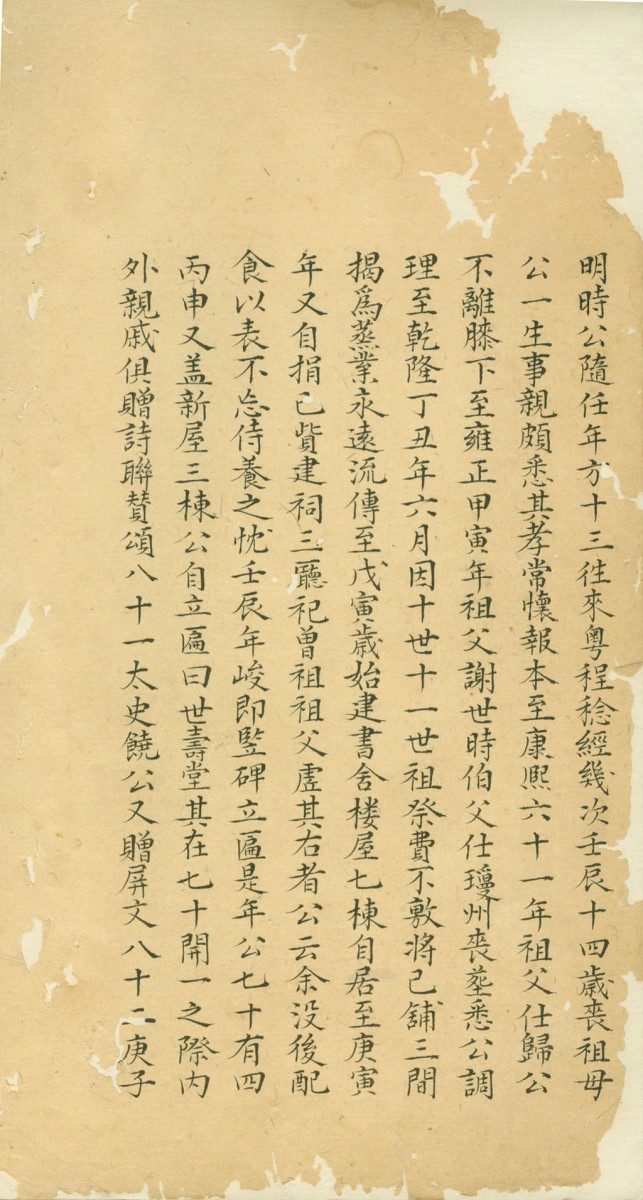 明時公隨任年方十三徃來粵程稔經幾次壬辰十四歲喪祖母
公一生事親頗悉其孝常懷報本至康熙六十一年祖父仕歸公
不離膝下至雍正甲寅年祖父謝世時伯父仕瓊州喪塟悉公調
理至乾隆丁丑年六月因十世十一世祖祭費不敷將己舖三間
揭爲蒸業永遠流傳至戊寅歲始建書舍楼屋七棟自居至庚寅
年又自捐己貲建祠三廳祀曾祖祖父虛其右者公云余没後配
食以表不忘侍養之忱壬辰年峻即竪碑立匾是年公七十有四
丙申又盖新屋三棟公自立匾曰世壽堂其在七十開一之際内
外親戚俱贈詩聯賛頌八十一太史饒公又贈屏文八十二庚子